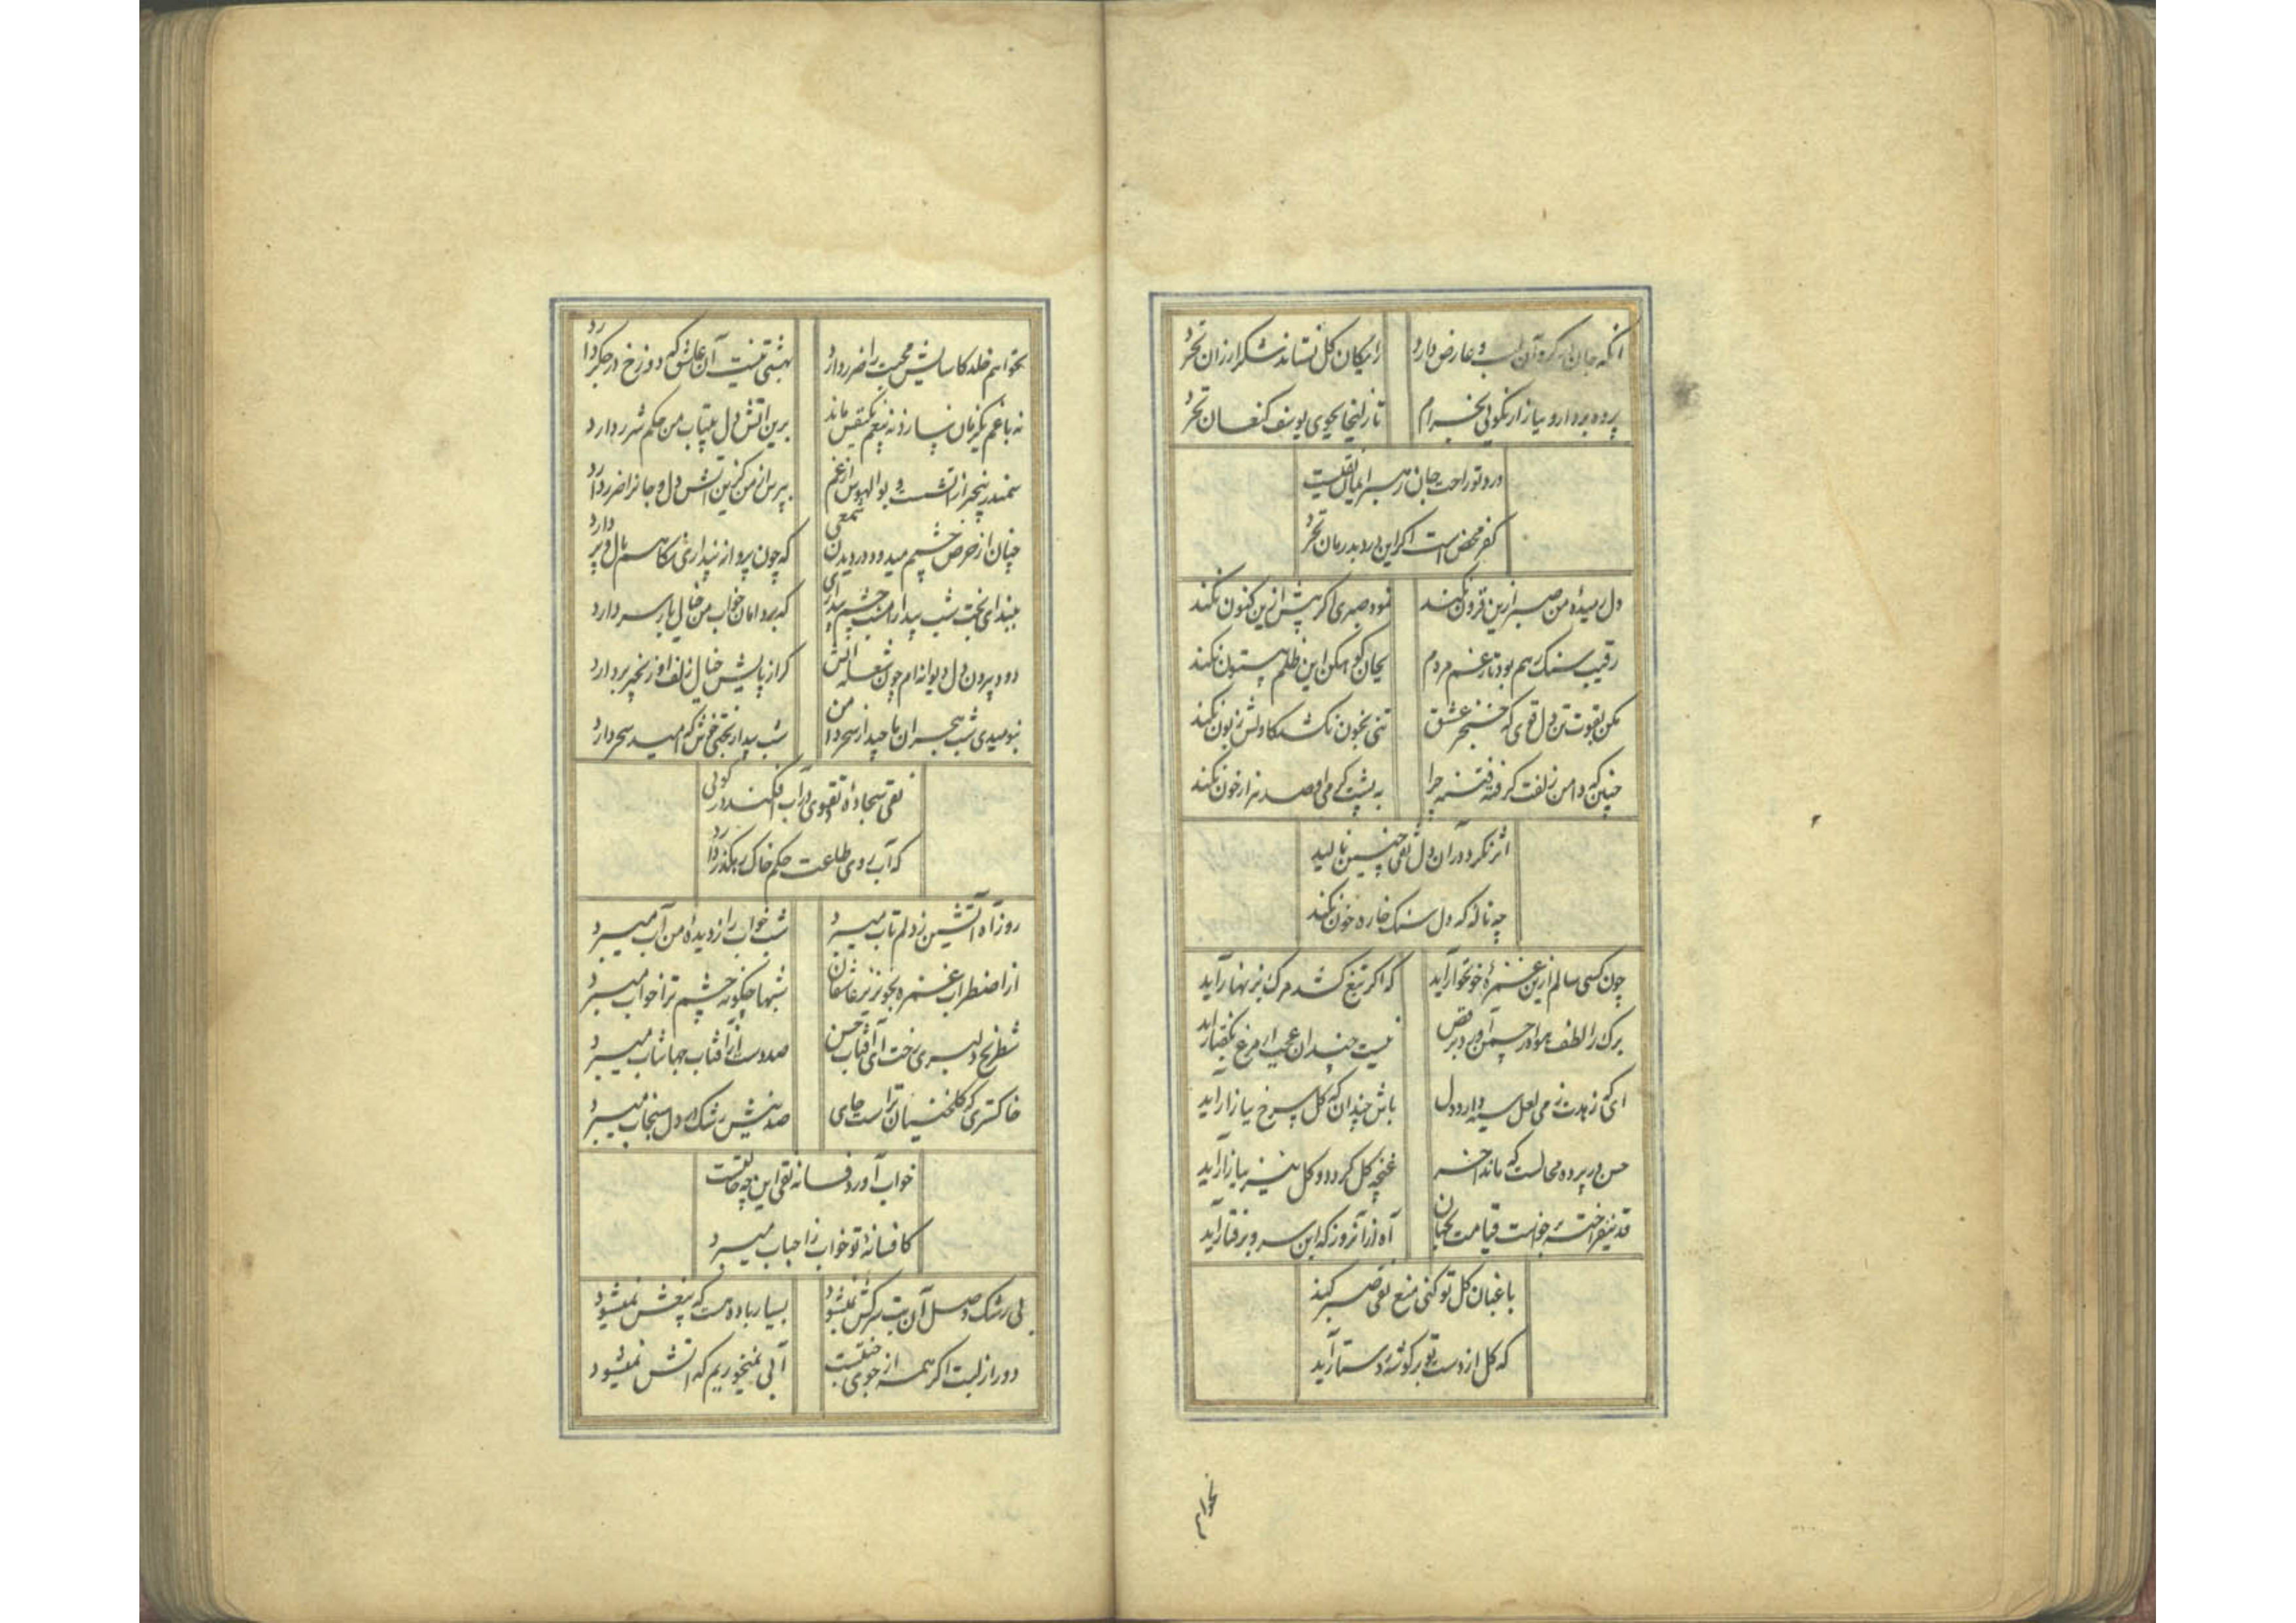 آنکه جان در کرو آن لب و عارض دارد
رایکان کل نستاند شکر ارزان نخرد
پرده بردار و ببازار نکوئی بخرام
تا زلیخا بجوی یوسف کنعان نخرد
درد تو راحت جان
کفر محض است اکر این درد بدرمان نخرد
دل رمیدهٔ من صبر ازین فزون نکند
نمود صبری اکر پیش ازین کنون نکند
رقیب سنک رهم بود تا زغم مردم
بجان کوهکن این ظلم بیستون نکند
مکن بقوت تن دل قوی که خنجر عشق
تنی بخون نکشد کاولش زبون نکند
چنین که دامن زلفت کرفته فتنه چرا
به پشت کرمی او صد هزار خون نکند
اثر نکرد در آن دل نقی چنین نالید
چه ناله که دل سنک خاره خون نکند
چون کسی سالم ازین غمزهٔ خونخوار آید
که اکر تیغ کشد مرک بزنهار آید
برک را لطف هوا در چمن آورد برقص
نیست چندان عجب ار مرغ بکفتار آید
ای که زهدت ز می لعل سیه دارد دل
باش چندان که کل سرخ ببازار آید
حسن در پرده محالست که ماند آخر
غنچه کل کردد و کل نیز ببازار آید
قد نیفراخته برخواست قیامت بجهان
آه از آنروز که این سرو برفتار آید
باغبان کل تو کنی منع نقی صبر کند
که کل از دست تو بر کوشهٔ دستار آید
نخواهم
نخواهم خلد کاسایش محبت را ضرر دارد
بهشتی نیست آن عاشق که دوزخ در جکر دارد
برین آتش دل بیتاب من حکم شرر دارد
سمندر بیخبر از آتشست و بوالهوس از غم
بپرس از من کزین آتش دل و جانرا ضرر دارد
چنان از حرص چشمم میدود در دیدن
که چون پرواز پنداری نکاهم بال و پر دارد
ببند ای بخت شب بیدار امشب چشم بیداری
که بر دامان خواب من خیال یار سر دارد
دود بیرون دل دیوانه ام چون شعله آتش
کر از پایش خیال زلف او زنجیر بردارد
بنومیدی شب هجران ما چیدار سحر دا من
شب بیدار بختی خوش که امید سحر دارد
نقی سجادهٔ تقوی در آب افکند در کوئی
که آب روی طاعت حکم خاک رهکذر دارد
روز آه آتشین ز دلم تاب میبرد
شب خواب را ز دیدهٔ من آب میبرد
از اضطراب غمزه بخونریز عاشقان
شبها چکونه چشم ترا خواب میبرد
شطرنج دلبری رخت ای آفتاب حسن
صد دست از آفتاب جهانتاب میبرد
خاکستری که کلخنیان تراست جای
صد نیش رشک در دل سنجاب میبرد
خواب آورد فسانه نقی این چه حالتست
کافسانهٔ تو خواب ز احباب میبرد
بی رشک وصل آن بت سرکش نمیشود
بسیار باده هست که بیغش نمیشود
دور از لبت اکر همه از جوی جنتست
آبی نمیخوریم که آتش نمیشود